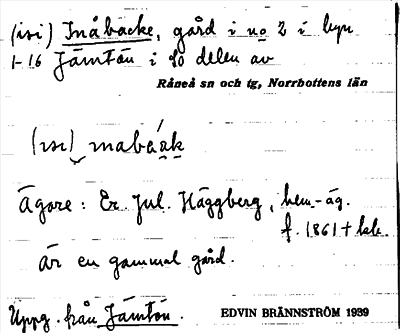 (isi) Inåbacke, gård i no 2 i byn
1-16 Jämtön i sö delen av
Råneå sn och tg, Norrbottens län
(ısı) ınabák
Ägare: Er. Jul. Häggberg, hem.-äg.
f. 1861 +
Är en gammal gård.
Uppg. från Jämtön.
EDVIN BRÄNNSTRÖM 1939